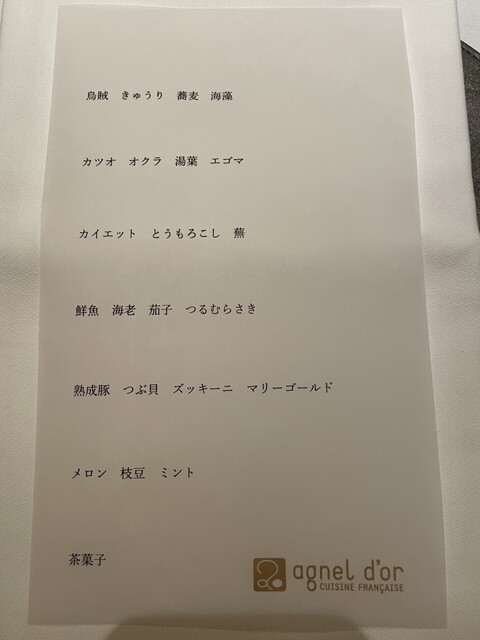 烏賊　きゅうり　蕎麦　海藻
カツオ　オクラ　湯葉　エゴマ
カイエット　とうもろこし　蕪
鮮魚　海老　茄子　つるむらさき
熟成豚　つぶ貝　ズッキーニ　マリーゴールド
メロン　枝豆　ミント
茶菓子
agnel d'or
CUISINE FRANÇAISE